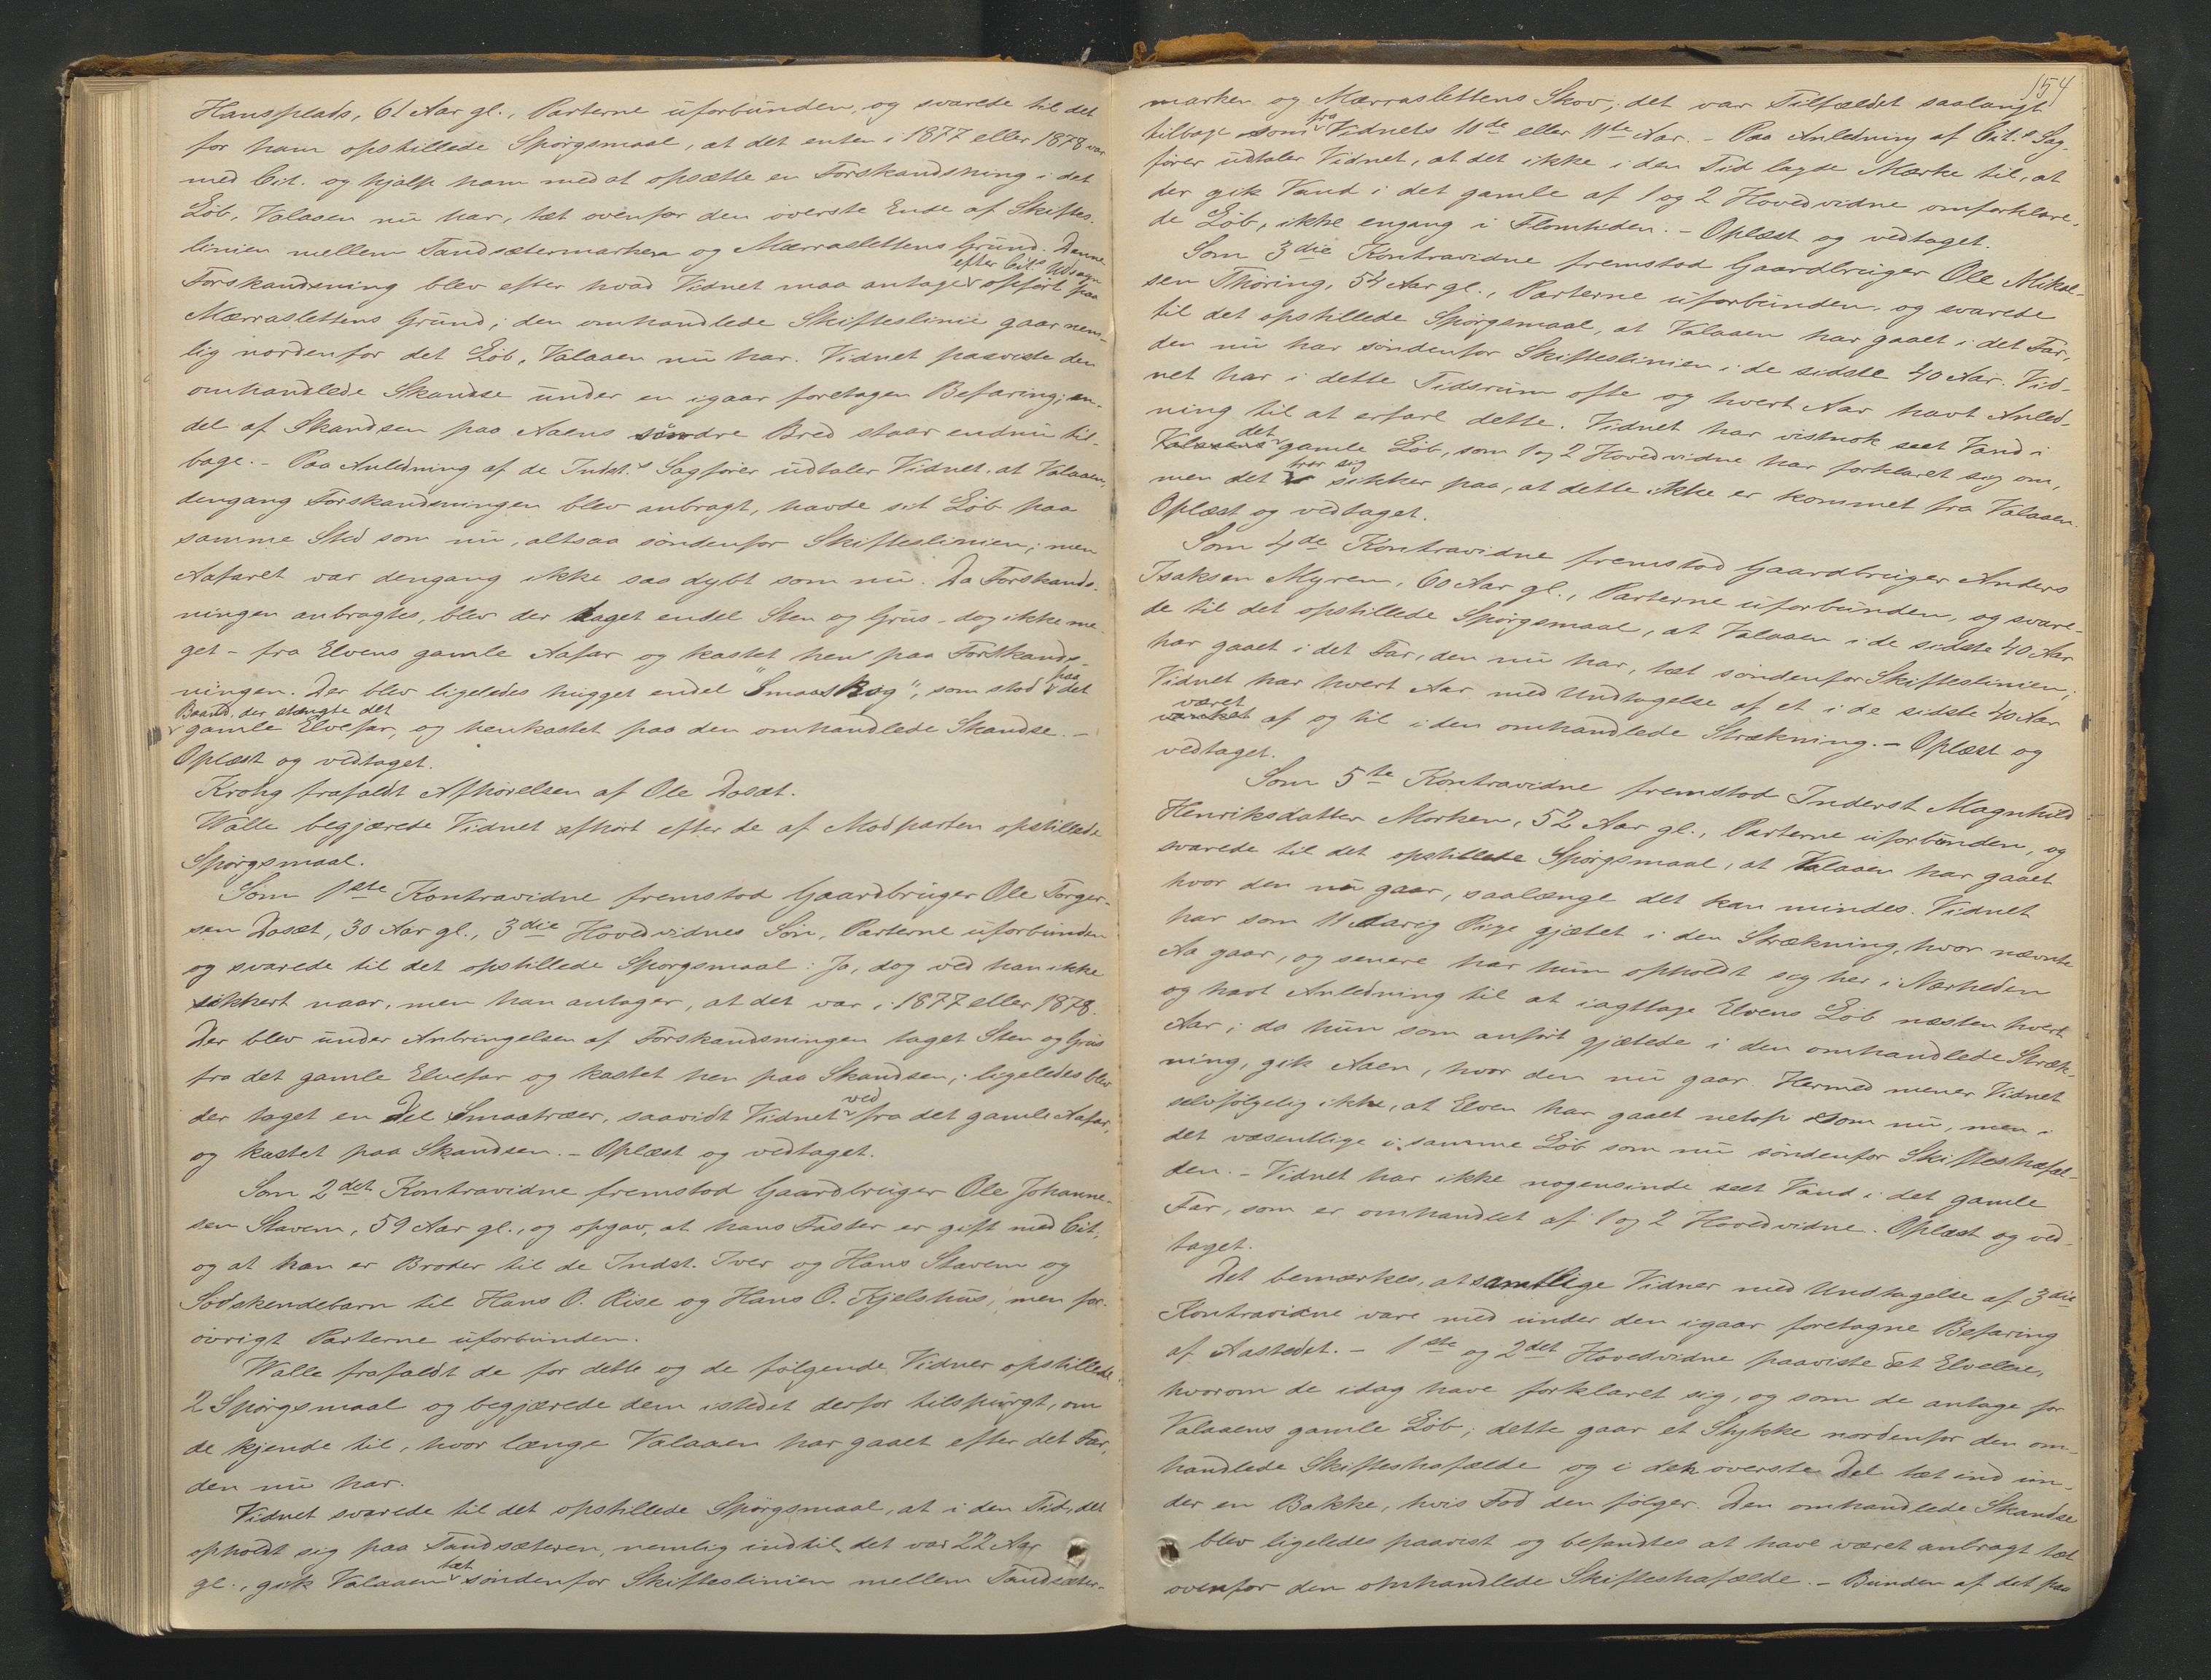 Hansplads, 61 Aar gl., Parterne uforbunden, og svarede til det
for ham opstillede Spørgsmaal, at det enten i 1877 eller 1878 var
med Cit. og hjalp ham med at opsætte en Forskandsning i det
Løb, Valaaen nu har, tæt ovenfor den øverste Ende af Skiftes-
linien mellem Tandsætermarken og Mærraslettens Grund. Denne
Forskandsning blev efter hvad Vidnet maa antage efter Cit.s Udsagn opført paa
Mærraslettens Grund; den omhandlede Skifteslinie gaar nem-
lig nordenfor det Løb, Valaaen nu har. Vidnet paaviste den
omhandlede Skandse under en igaar foretagen Befaring; en-
del af Skandsen paa Aaens søndre Bred staar endnu til-
bage. - Paa Anledning af de Indst.s Sagfører udtaler Vidnet, at Valaaen,
dengang Forskandsningen blev anbragt, havde sit Løb paa
samme Sted som nu, altsaa søndenfor Skifteslinien; men
Aafaret var dengang ikke saa dybt som nu. Da Forskands-
ningen anbragtes, blev der taget endel Sten og Grus - dog ikke me-
get - fra Elvens gamle Aafar og kastet hen paa Forskands-
ningen. Der blev ligeledes hugget endel "Smaaskog", som stod paa det
Baand, der stængte det
gamle Elvefar, og henkastet paa den omhandlede Skandse. -
Oplæst og vedtaget.
Krohg frafaldt Afhørelsen af Ole Dosæt.
Walle begjærede Vidnet afhørt efter de af Modparten opstillede
Spørgsmaal.
Som 1ste Kontravidne fremstod Gaardbruger Ole Torger-
sen Dosæt, 30 Aar gl., 3die Hovedvidnes Søn, Parterne uforbunden
og svarede til det opstillede Spørgsmaal: Ja, dog ved han ikke
sikkert naar, men han antager, at det var i 1877 eller 1878.
Der blev under Anbringelsen af Forskandsningen taget Sten og Grus
fra det gamle Elvefar og kastet hen paa Skandsen; ligeledes blev
der taget en Del Smaatræer, saavidt Vidnet ved fra det gamle Aafar,
og kastet paa Skandsen. - Oplæst og vedtaget.
Som 2det Kontravidne fremstod Gaardbruger Ole Johanne-
sen Stavem, 59 Aar gl., og opgav, at hans Faster er gift med Cit.
og at han er Broder til de Indst. Iver og Hans Stavem og
Sødskendebarn til Hans O. Rise og Hans O. Kjelshus, men for-
øvrigt Parterne uforbunden.
Walle frafaldt de for dette og de følgende Vidner opstillede
2 Spørgsmaal og begjærede dem istedet derfor tilspurgt, om
de kjende til, hvor længe Valaaen har gaaet efter det Far,
den nu har.
Vidnet svarede til det opstillede Spørgsmaal, at i den Tid, det
opholdt sig paa Tandsæteren, nemlig indtil det var 22 Aar
gl., gik Valaaen tæt søndenfor Skifteslinien mellem Tandsæter-
154
marken og Mærraslettens Skov; det var Tilfældet saalangt
tilbage som fra Vidnets 10de eller 11te Aar. - Paa Anledning af Cit.s Sag-
fører udtaler Vidnet, at det ikke i den Tid lagde Mærke til, at
der gik Vand i det gamle af 1 og 2 Hovedvidne omforklare-
de Løb, ikke engang i Flomtiden. - Oplæst og vedtaget.
Som 3die Kontravidne fremstod Gaardbruger Ole Mikal-
sen Thøring, 54 Aar gl., Parterne uforbunden, og svarede
til det opstillede Spørgsmaal, at Valaaen har gaaet i det Far,
den nu har søndenfor Skifteslinien i de sidste 40 Aar. Vid-
net har i dette Tidsrum ofte og hvert Aar havt Anled-
ning til at erfare dette. Vidnet har vistnok seet Vand i
Valaaens det gamle Løb, som 1 og 2 Hovedvidne har forklaret sig om,
men det tror sig sikker paa, at dette ikke er kommet fra Valaaen.
Oplæst og vedtaget.
Som 4de Kontravidne fremstod Gaardbruger Anders
Isaksen Myren, 60 Aar gl., Parterne uforbunden, og svare-
de til det opstillede Spørgsmaal, at Valaaen i de sidste 40 Aar
har gaaet i det Far, den nu har, tæt søndenfor Skifteslinien;
Vidnet har hvert Aar med Undtagelse af et i de sidste 40 Aar
været af og til i den omhandlede Strækning. - Oplæst og
vedtaget.
Som 5te Kontravidne fremstod Inderst Magnhild
Henriksdatter Morken, 52 Aar gl., Parterne uforbunden, og
svarede til det opstillede Spørgsmaal, at Valaaen har gaaet
hvor den nu gaar, saalænge det kan mindes. Vidnet
har som 11 Aarig Pige gjætet i den Strækning, hvor nævnte
Aa gaar, og senere har hun opholdt sig her i Nærheden
og havt Anledning til at iagttage Elvens Løb næsten hvert
Aar; da hun som anført gjætede i den omhandlede Stræk-
ning, gik Aaen, hvor den nu gaar. Hermed mener Vidnet
selvfølgelig ikke, at Elven har gaaet netop som nu, men i
det væsentlige i samme Løb som nu søndenfor Skifteshafæl-
den. - Vidnet har ikke nogensinde seet Vand i det gamle
Far, som er omhandlet af 1 og 2 Hovedvidne. Oplæst og ved-
taget.
Det bemærkes, at samtlige Vidner med Undtagelse af 3die
Kontravidne vare med under den igaar foretagne Befaring
af Aastedet. - 1ste og 2det Hovedvidne paaviste det Elveleie,
hvorom de idag have forklaret sig, og som de antage for
Valaaens gamle Løb; dette gaar et Stykke nordenfor den om-
handlede Skifteshafælde og i den øverste Del tæt ind un-
der en Bakke, hvis Fod den følger. Den omhandlede Skandse
blev ligeledes paavist og befandtes at have været anbragt tæt
ovenfor den omhandlede Skifteshafælde. - Bunden af det paa